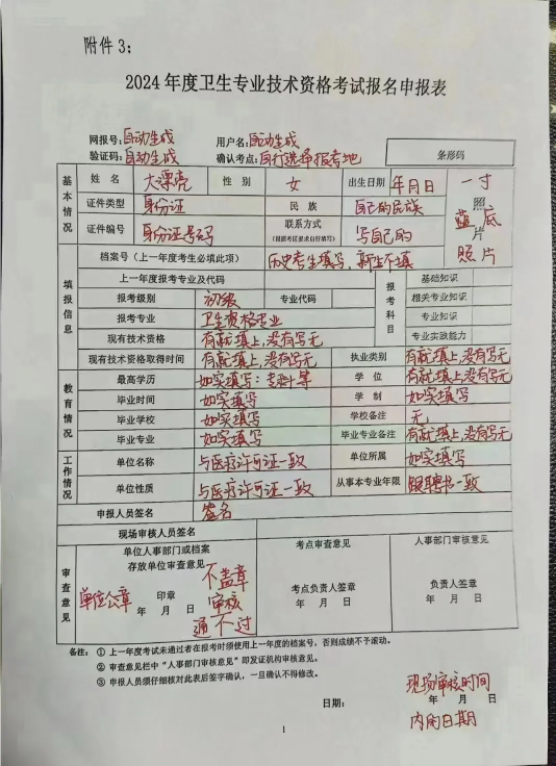 附件 3：
2024 年度卫生专业技术资格考试报名申报表
网报号：自动生成 用户名：自动生成
验证码：自动生成 确认考点：自行选择报考地 条形码
基本情况 姓名 大漂亮 性别 女 出生日期 年月日 一寸
证件类型 身份证 民族 自己的民族 照 蓝底
证件编号 身份证号码 联系方式 写自己的 片 照片
（根据考区要求自行填写）
填报信息 档案号（上一年度考生必填此项） 历史考生填写，新生不填
上一年度报考专业及代码 报考科目 基础知识
报考级别 初级 专业代码 相关专业知识
报考专业 卫生资格专业 专业知识
现有技术资格 有就填上，没有写无 专业实践能力
现有技术资格取得时间 有就填上，没有写无 执业类别 有就填上，没有写无
教育情况 最高学历 如实填写：专科等 学位 有就填上，没有写无
毕业时间 如实填写 学制 如实填写
毕业学校 如实填写 学校备注 无
毕业专业 如实填写 毕业专业备注 有就填上，没有写无
工作情况 单位名称 与医疗许可证一致 单位所属 如实填写
单位性质 与医疗许可证一致 从事本专业年限 跟聘书一致
申报人员签名 签名
现场审核人员签名
审查意见 单位人事部门或档案 考点审查意见 人事部门审核意见
存放单位审查意见 不盖章
单位公章 印章 审核 考点负责人签章 负责人签章
年 月 日 通不过 年 月 日 年 月 日
备注： ① 上一年度考试未通过者在报考时须使用上一年度的档案号，否则成绩不予滚动。
② 审查意见栏中“人事部门审核意见”即发证机构审核意见。
③ 申报人员须仔细核对此表后签字确认，一旦确认不得修改。
现场审核时间
日期： 年 月 日
内的日期
1